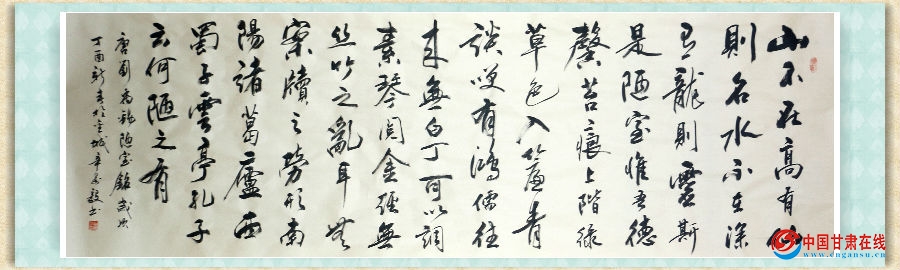 山不在高有仙
則名水不在深
有龍則靈斯
是陋室惟吾德
馨苔痕上階綠
草色入簾青
談笑有鴻儒往
来無白丁可以調
素琴閱金經無
丝竹之亂耳無
案牘之勞形南
陽諸葛廬西
蜀子雲亭孔子
云何陋之有
唐劉禹錫陋室銘歲次
丁酉新春於金城辛毅书
中国甘肃在线
www.cngansu.cn